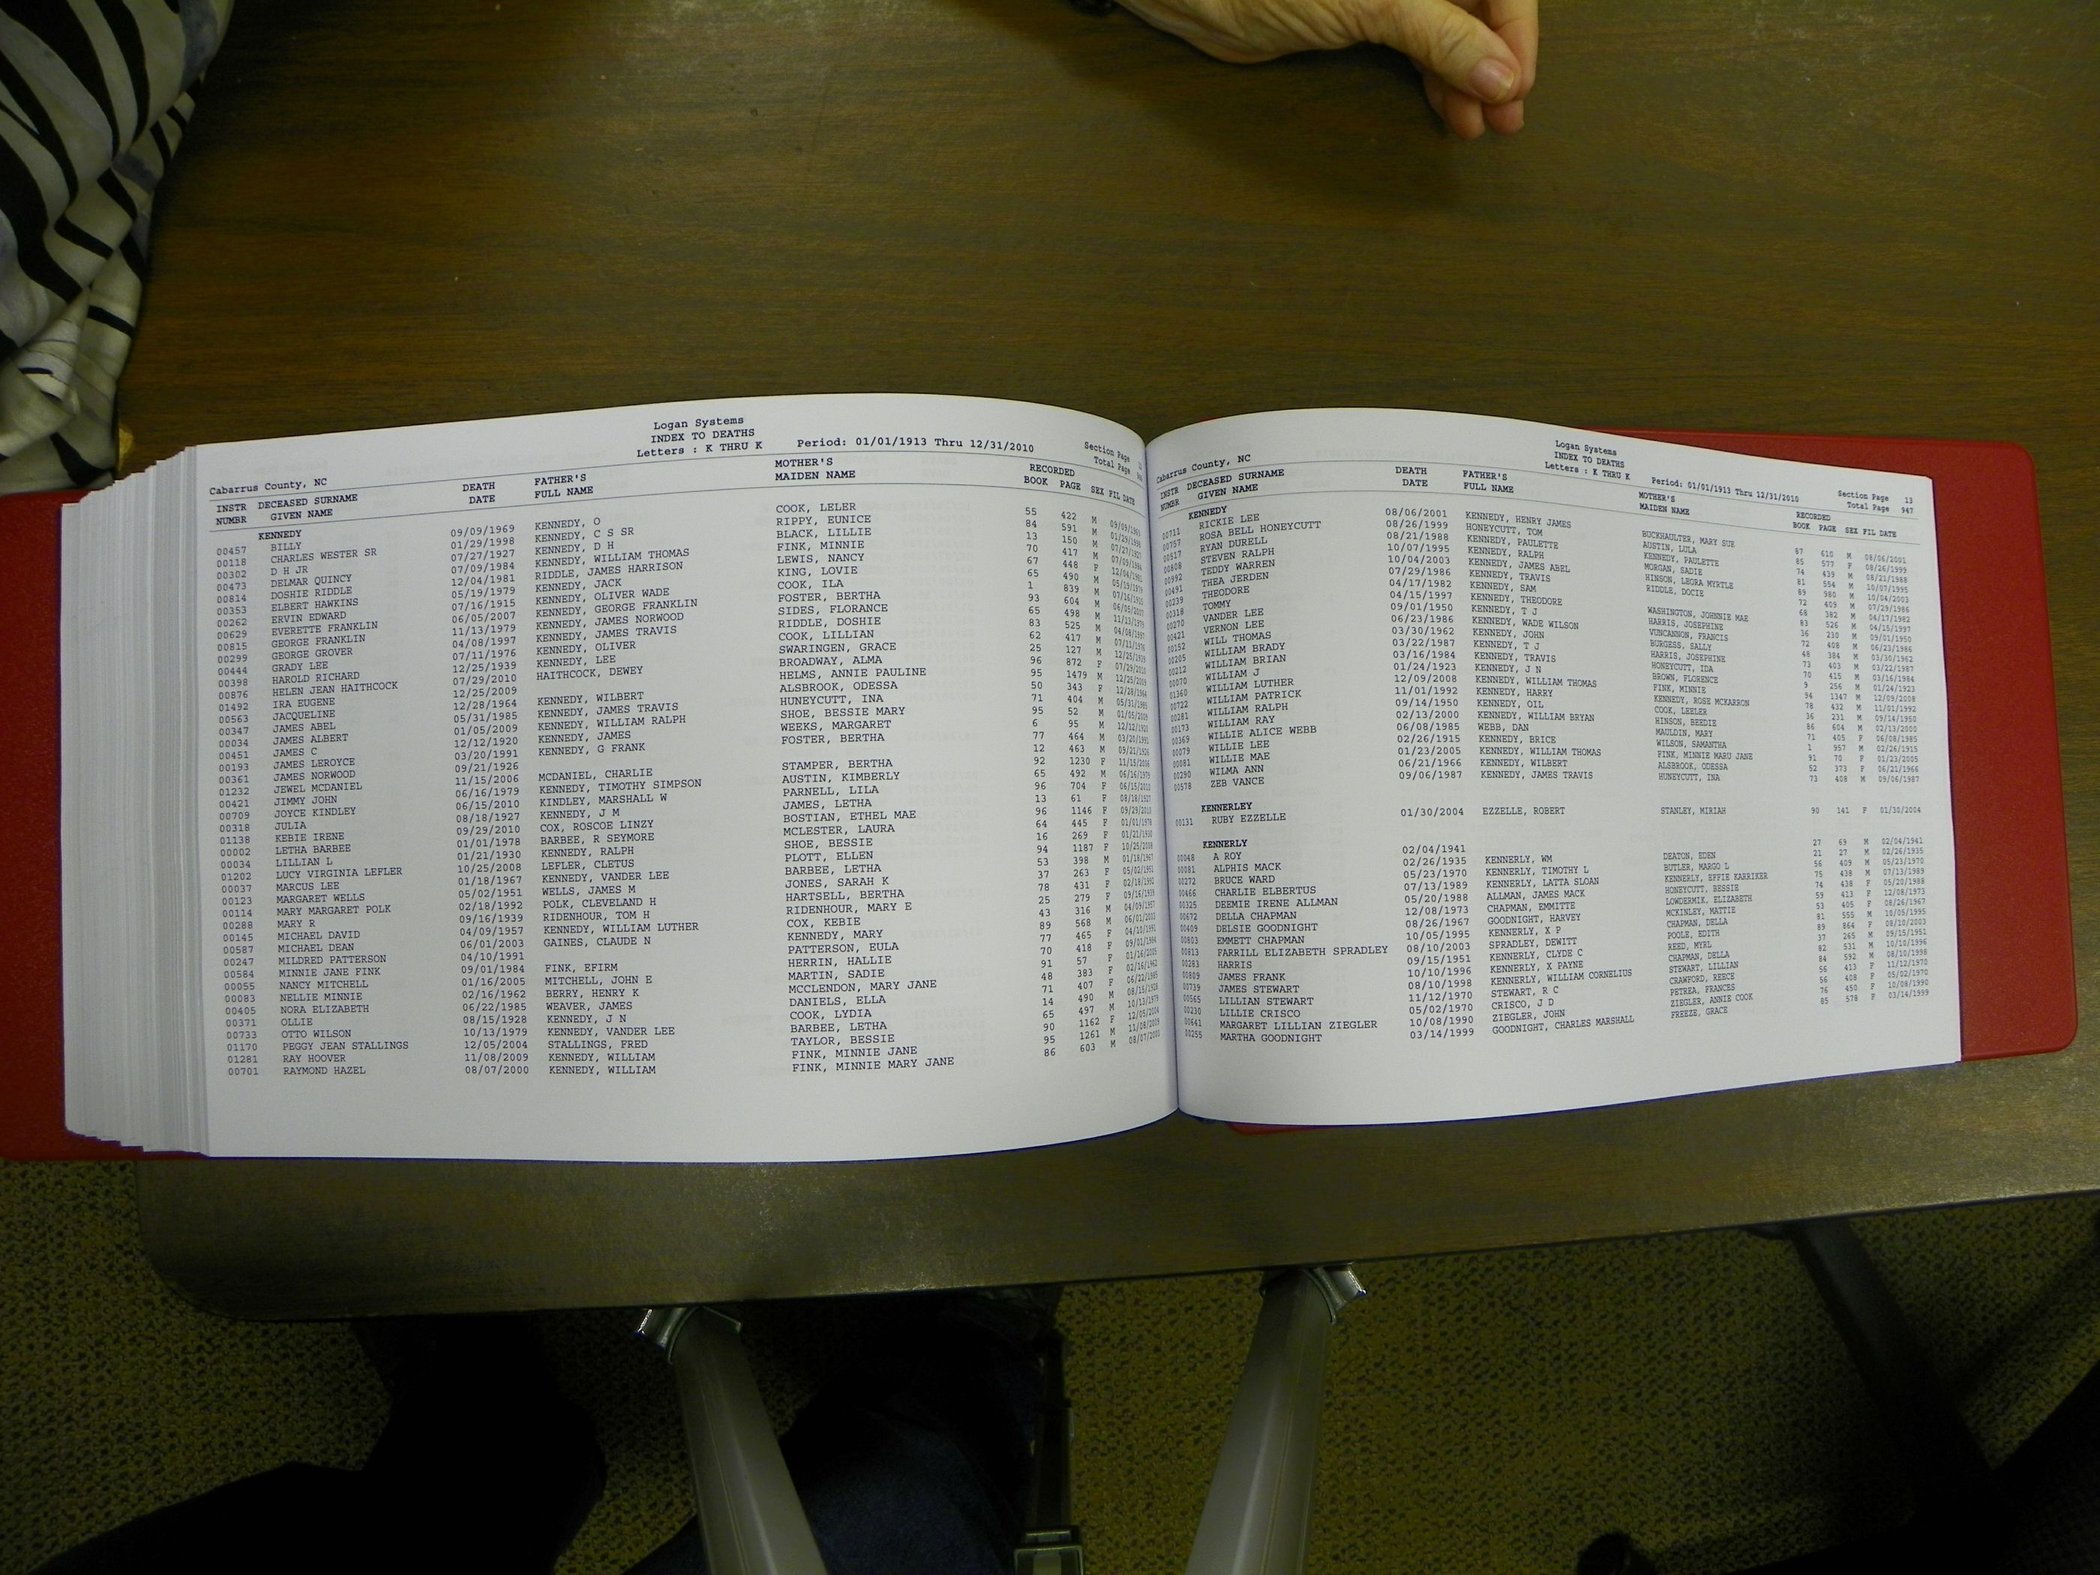 Logan Systems
INDEX TO DEATHS
Letters : K THRU K Period: 01/01/1913 Thru 12/31/2010
Section Page
Total Page
Cabarrus County, NC
INSTR DECEASED SURNAME DEATH FATHER'S MOTHER'S RECORDED
NUMBR GIVEN NAME DATE FULL NAME MAIDEN NAME BOOK PAGE SEX FIL DATE
KENNEDY
00457 BILLY 09/09/1969 KENNEDY, O COOK, LELER 55 422 M 09/09/1969
00118 CHARLES WESTER SR 01/29/1998 KENNEDY, C S SR RIPPY, EUNICE 84 591 M 01/29/1998
00302 D H JR 07/27/1927 KENNEDY, D H BLACK, LILLIE 13 150 M 07/27/1927
00473 DELMAR QUINCY 07/09/1984 KENNEDY, WILLIAM THOMAS FINK, MINNIE 70 417 M 07/09/1984
00814 DOSHIE RIDDLE 12/04/1981 RIDDLE, JAMES HARRISON LEWIS, NANCY 67 448 F 12/04/1981
00353 ELBERT HAWKINS 05/19/1979 KENNEDY, JACK KING, LOVIE 65 490 M 05/19/1979
00262 ERVIN EDWARD 07/16/1915 KENNEDY, OLIVER WADE COOK, ILA 1 839 M 07/16/1915
00629 EVERETTE FRANKLIN 06/05/2007 KENNEDY, GEORGE FRANKLIN FOSTER, BERTHA 93 604 M 06/05/2007
00815 GEORGE FRANKLIN 11/13/1979 KENNEDY, JAMES NORWOOD SIDES, FLORANCE 65 498 M 11/13/1979
00299 GEORGE GROVER 04/08/1997 KENNEDY, JAMES TRAVIS RIDDLE, DOSHIE 83 525 M 04/08/1997
00444 GRADY LEE 07/11/1976 KENNEDY, OLIVER COOK, LILLIAN 62 417 M 07/11/1976
00398 HAROLD RICHARD 12/25/1939 KENNEDY, LEE SWARINGEN, GRACE 25 127 M 12/25/1939
00876 HELEN JEAN HAITHCOCK 07/29/2010 HAITHCOCK, DEWEY BROADWAY, ALMA 96 872 F 07/29/2010
01492 IRA EUGENE 12/25/2009 HELMS, ANNIE PAULINE 95 1479 M 12/25/2009
00563 JACQUELINE 12/28/1964 KENNEDY, WILBERT ALSBROOK, ODESSA 50 343 F 12/28/1964
00347 JAMES ABEL 05/31/1985 KENNEDY, JAMES TRAVIS HUNEYCUTT, INA 71 404 M 05/31/1985
00034 JAMES ALBERT 01/05/2009 KENNEDY, WILLIAM RALPH SHOE, BESSIE MARY 95 52 M 01/05/2009
00451 JAMES C 12/12/1920 KENNEDY, JAMES WEEKS, MARGARET 6 95 M 12/12/1920
00193 JAMES LEROYCE 03/20/1991 KENNEDY, G FRANK FOSTER, BERTHA 77 464 M 03/20/1991
00361 JAMES NORWOOD 09/21/1926 12 463 M 09/21/1926
01232 JEWEL MCDANIEL 11/15/2006 MCDANIEL, CHARLIE STAMPER, BERTHA 92 1230 F 11/15/2006
00421 JIMMY JOHN 06/16/1979 KENNEDY, TIMOTHY SIMPSON AUSTIN, KIMBERLY 65 492 M 06/16/1979
00709 JOYCE KINDLEY 06/15/2010 KINDLEY, MARSHALL W PARNELL, LILA 96 704 F 06/15/2010
00318 JULIA 08/18/1927 KENNEDY, J M JAMES, LETHA 13 61 F 08/18/1927
01138 KEBIE IRENE 09/29/2010 COX, ROSCOE LINZY BOSTIAN, ETHEL MAE 96 1146 F 09/29/2010
00002 LETHA BARBEE 01/01/1978 BARBEE, R SEYMORE MCLESTER, LAURA 64 445 F 01/01/1978
00034 LILLIAN L 01/21/1930 KENNEDY, RALPH SHOE, BESSIE 16 269 F 01/21/1930
01202 LUCY VIRGINIA LEFLER 10/25/2008 LEFLER, CLETUS PLOTT, ELLEN 94 1187 F 10/25/2008
00037 MARCUS LEE 01/18/1967 KENNEDY, VANDER LEE BARBEE, LETHA 53 398 M 01/18/1967
00123 MARGARET WELLS 05/02/1951 WELLS, JAMES M JONES, SARAH K 37 263 F 05/02/1951
00114 MARY MARGARET POLK 02/18/1992 POLK, CLEVELAND H HARTSELL, BERTHA 78 431 F 02/18/1992
00288 MARY R 09/16/1939 RIDENHOUR, TOM H RIDENHOUR, MARY E 25 279 F 09/16/1939
00145 MICHAEL DAVID 04/09/1957 KENNEDY, WILLIAM LUTHER COX, KEBIE 43 316 M 04/09/1957
00587 MICHAEL DEAN 06/01/2003 GAINES, CLAUDE N KENNEDY, MARY 89 568 M 06/01/2003
00247 MILDRED PATTERSON 04/10/1991 PATTERSON, EULA 77 465 F 04/10/1991
00584 MINNIE JANE FINK 09/01/1984 FINK, EFIRM HERRIN, HALLIE 70 418 F 09/01/1984
00055 NANCY MITCHELL 01/16/2005 MITCHELL, JOHN E MARTIN, SADIE 91 57 F 01/16/2005
00083 NELLIE MINNIE 02/16/1962 BERRY, HENRY K MCCLENDON, MARY JANE 48 383 F 02/16/1962
00405 NORA ELIZABETH 06/22/1985 WEAVER, JAMES DANIELS, ELLA 71 407 F 06/22/1985
00371 OLLIE 08/15/1928 KENNEDY, J N COOK, LYDIA 14 490 M 08/15/1928
00733 OTTO WILSON 10/13/1979 KENNEDY, VANDER LEE BARBEE, LETHA 65 497 M 10/13/1979
01170 PEGGY JEAN STALLINGS 12/05/2004 STALLINGS, FRED TAYLOR, BESSIE 90 1162 F 12/05/2004
01281 RAY HOOVER 11/08/2009 KENNEDY, WILLIAM FINK, MINNIE JANE 95 1261 M 11/08/2009
00701 RAYMOND HAZEL 08/07/2000 KENNEDY, WILLIAM FINK, MINNIE MARY JANE 86 603 M 08/07/2000
Logan Systems
INDEX TO DEATHS
Letters : K THRU K Period: 01/01/1913 Thru 12/31/2010
Section Page 13
Total Page 947
Cabarrus County, NC
INSTR DECEASED SURNAME DEATH FATHER'S MOTHER'S RECORDED
NUMBR GIVEN NAME DATE FULL NAME MAIDEN NAME BOOK PAGE SEX FIL DATE
KENNEDY
00711 RICKIE LEE 08/06/2001 KENNEDY, HENRY JAMES BUCKHAULTER, MARY SUE 87 610 M 08/06/2001
00757 ROSA BELL HONEYCUTT 08/26/1999 HONEYCUTT, TOM AUSTIN, LULA 85 577 F 08/26/1999
00517 RYAN DURELL 08/21/1988 KENNEDY, PAULETTE KENNEDY, PAULETTE 74 439 M 08/21/1988
00808 STEVEN RALPH 10/07/1995 KENNEDY, RALPH MORGAN, SADIE 81 554 M 10/07/1995
00992 TEDDY WARREN 10/04/2003 KENNEDY, JAMES ABEL HINSON, LEGRA MYRTLE 89 980 M 10/04/2003
00491 THEA JERDEN 07/29/1986 KENNEDY, TRAVIS RIDDLE, DOCIE 72 409 M 07/29/1986
00239 THEODORE 04/17/1982 KENNEDY, SAM 68 382 M 04/17/1982
00318 TOMMY 04/15/1997 KENNEDY, THEODORE WASHINGTON, JOHNNIE MAE 83 526 M 04/15/1997
00270 VANDER LEE 09/01/1950 KENNEDY, T J HARRIS, JOSEPHINE 36 230 M 09/01/1950
00421 VERNON LEE 06/23/1986 KENNEDY, WADE WILSON VUNCANNON, FRANCIS 72 408 M 06/23/1986
00152 WILL THOMAS 03/30/1962 KENNEDY, JOHN BURGESS, SALLY 48 384 M 03/30/1962
00205 WILLIAM BRADY 03/22/1987 KENNEDY, T J HARRIS, JOSEPHINE 73 403 M 03/22/1987
00212 WILLIAM BRIAN 03/16/1984 KENNEDY, TRAVIS HONEYCUTT, IDA 70 415 M 03/16/1984
00070 WILLIAM J 01/24/1923 KENNEDY, J N BROWN, FLORENCE 9 256 M 01/24/1923
01360 WILLIAM LUTHER 12/09/2008 KENNEDY, WILLIAM THOMAS FINK, MINNIE 94 1347 M 12/09/2008
00722 WILLIAM PATRICK 11/01/1992 KENNEDY, HARRY KENNEDY, ROSE MCKARRON 78 432 M 11/01/1992
00281 WILLIAM RALPH 09/14/1950 KENNEDY, OIL COOK, LEELER 36 231 M 09/14/1950
00173 WILLIAM RAY 02/13/2000 KENNEDY, WILLIAM BRYAN HINSON, BEEDIE 86 604 M 02/13/2000
00369 WILLIE ALICE WEBB 06/08/1985 WEBB, DAN MAULDIN, MARY 71 405 F 06/08/1985
00079 WILLIE LEE 02/26/1915 KENNEDY, BRICE WILSON, SAMANTHA 1 957 M 02/26/1915
00081 WILLIE MAE 01/23/2005 KENNEDY, WILLIAM THOMAS FINK, MINNIE MARU JANE 91 70 F 01/23/2005
00290 WILMA ANN 06/21/1966 KENNEDY, WILBERT ALSBROOK, ODESSA 52 373 F 06/21/1966
00578 ZEB VANCE 09/06/1987 KENNEDY, JAMES TRAVIS HUNEYCUTT, INA 73 408 M 09/06/1987
KENNERLEY
00131 RUBY EZZELLE 01/30/2004 EZZELLE, ROBERT STANLEY, MIRIAH 90 141 F 01/30/2004
KENNERLY
00048 A ROY 02/04/1941 27 69 M 02/04/1941
00081 ALPHIS MACK 02/26/1935 KENNERLY, WM DEATON, EDEN 21 27 M 02/26/1935
00272 BRUCE WARD 05/23/1970 KENNERLY, TIMOTHY L BUTLER, MARGO L 56 409 M 05/23/1970
00466 CHARLIE ELBERTUS 07/13/1989 KENNERLY, LATTA SLOAN KENNERLY, EFFIE KARRIKER 75 438 M 07/13/1989
00325 DEEMIE IRENE ALLMAN 05/20/1988 ALLMAN, JAMES MACK HONEYCUTT, BESSIE 74 438 F 05/20/1988
00672 DELLA CHAPMAN 12/08/1973 CHAPMAN, EMMITTE LOWDERMIK, ELIZABETH 59 413 F 12/08/1973
00409 DELSIE GOODNIGHT 08/26/1967 GOODNIGHT, HARVEY MCKINLEY, MATTIE 53 405 F 08/26/1967
00803 EMMETT CHAPMAN 10/05/1995 KENNERLY, X P CHAPMAN, DELLA 81 555 M 10/05/1995
00813 FARRILL ELIZABETH SPRADLEY 08/10/2003 SPRADLEY, DEWITT POOLE, EDITH 89 864 F 08/10/2003
00283 HARRIS 09/15/1951 KENNERLY, CLYDE C REED, MYRL 37 265 M 09/15/1951
00809 JAMES FRANK 10/10/1996 KENNERLY, X PAYNE CHAPMAN, DELLA 82 531 M 10/10/1996
00739 JAMES STEWART 08/10/1998 KENNERLY, WILLIAM CORNELIUS STEWART, LILLIAN 84 592 M 08/10/1998
00565 LILLIAN STEWART 11/12/1970 STEWART, R C CRAWFORD, REECE 56 413 F 11/12/1970
00230 LILLIE CRISCO 05/02/1970 CRISCO, J D PETREA, FRANCES 56 408 F 05/02/1970
00641 MARGARET LILLIAN ZIEGLER 10/08/1990 ZIEGLER, JOHN ZIEGLER, ANNIE COOK 76 450 F 10/08/1990
00255 MARTHA GOODNIGHT 03/14/1999 GOODNIGHT, CHARLES MARSHALL FREEZE, GRACE 85 578 F 03/14/1999